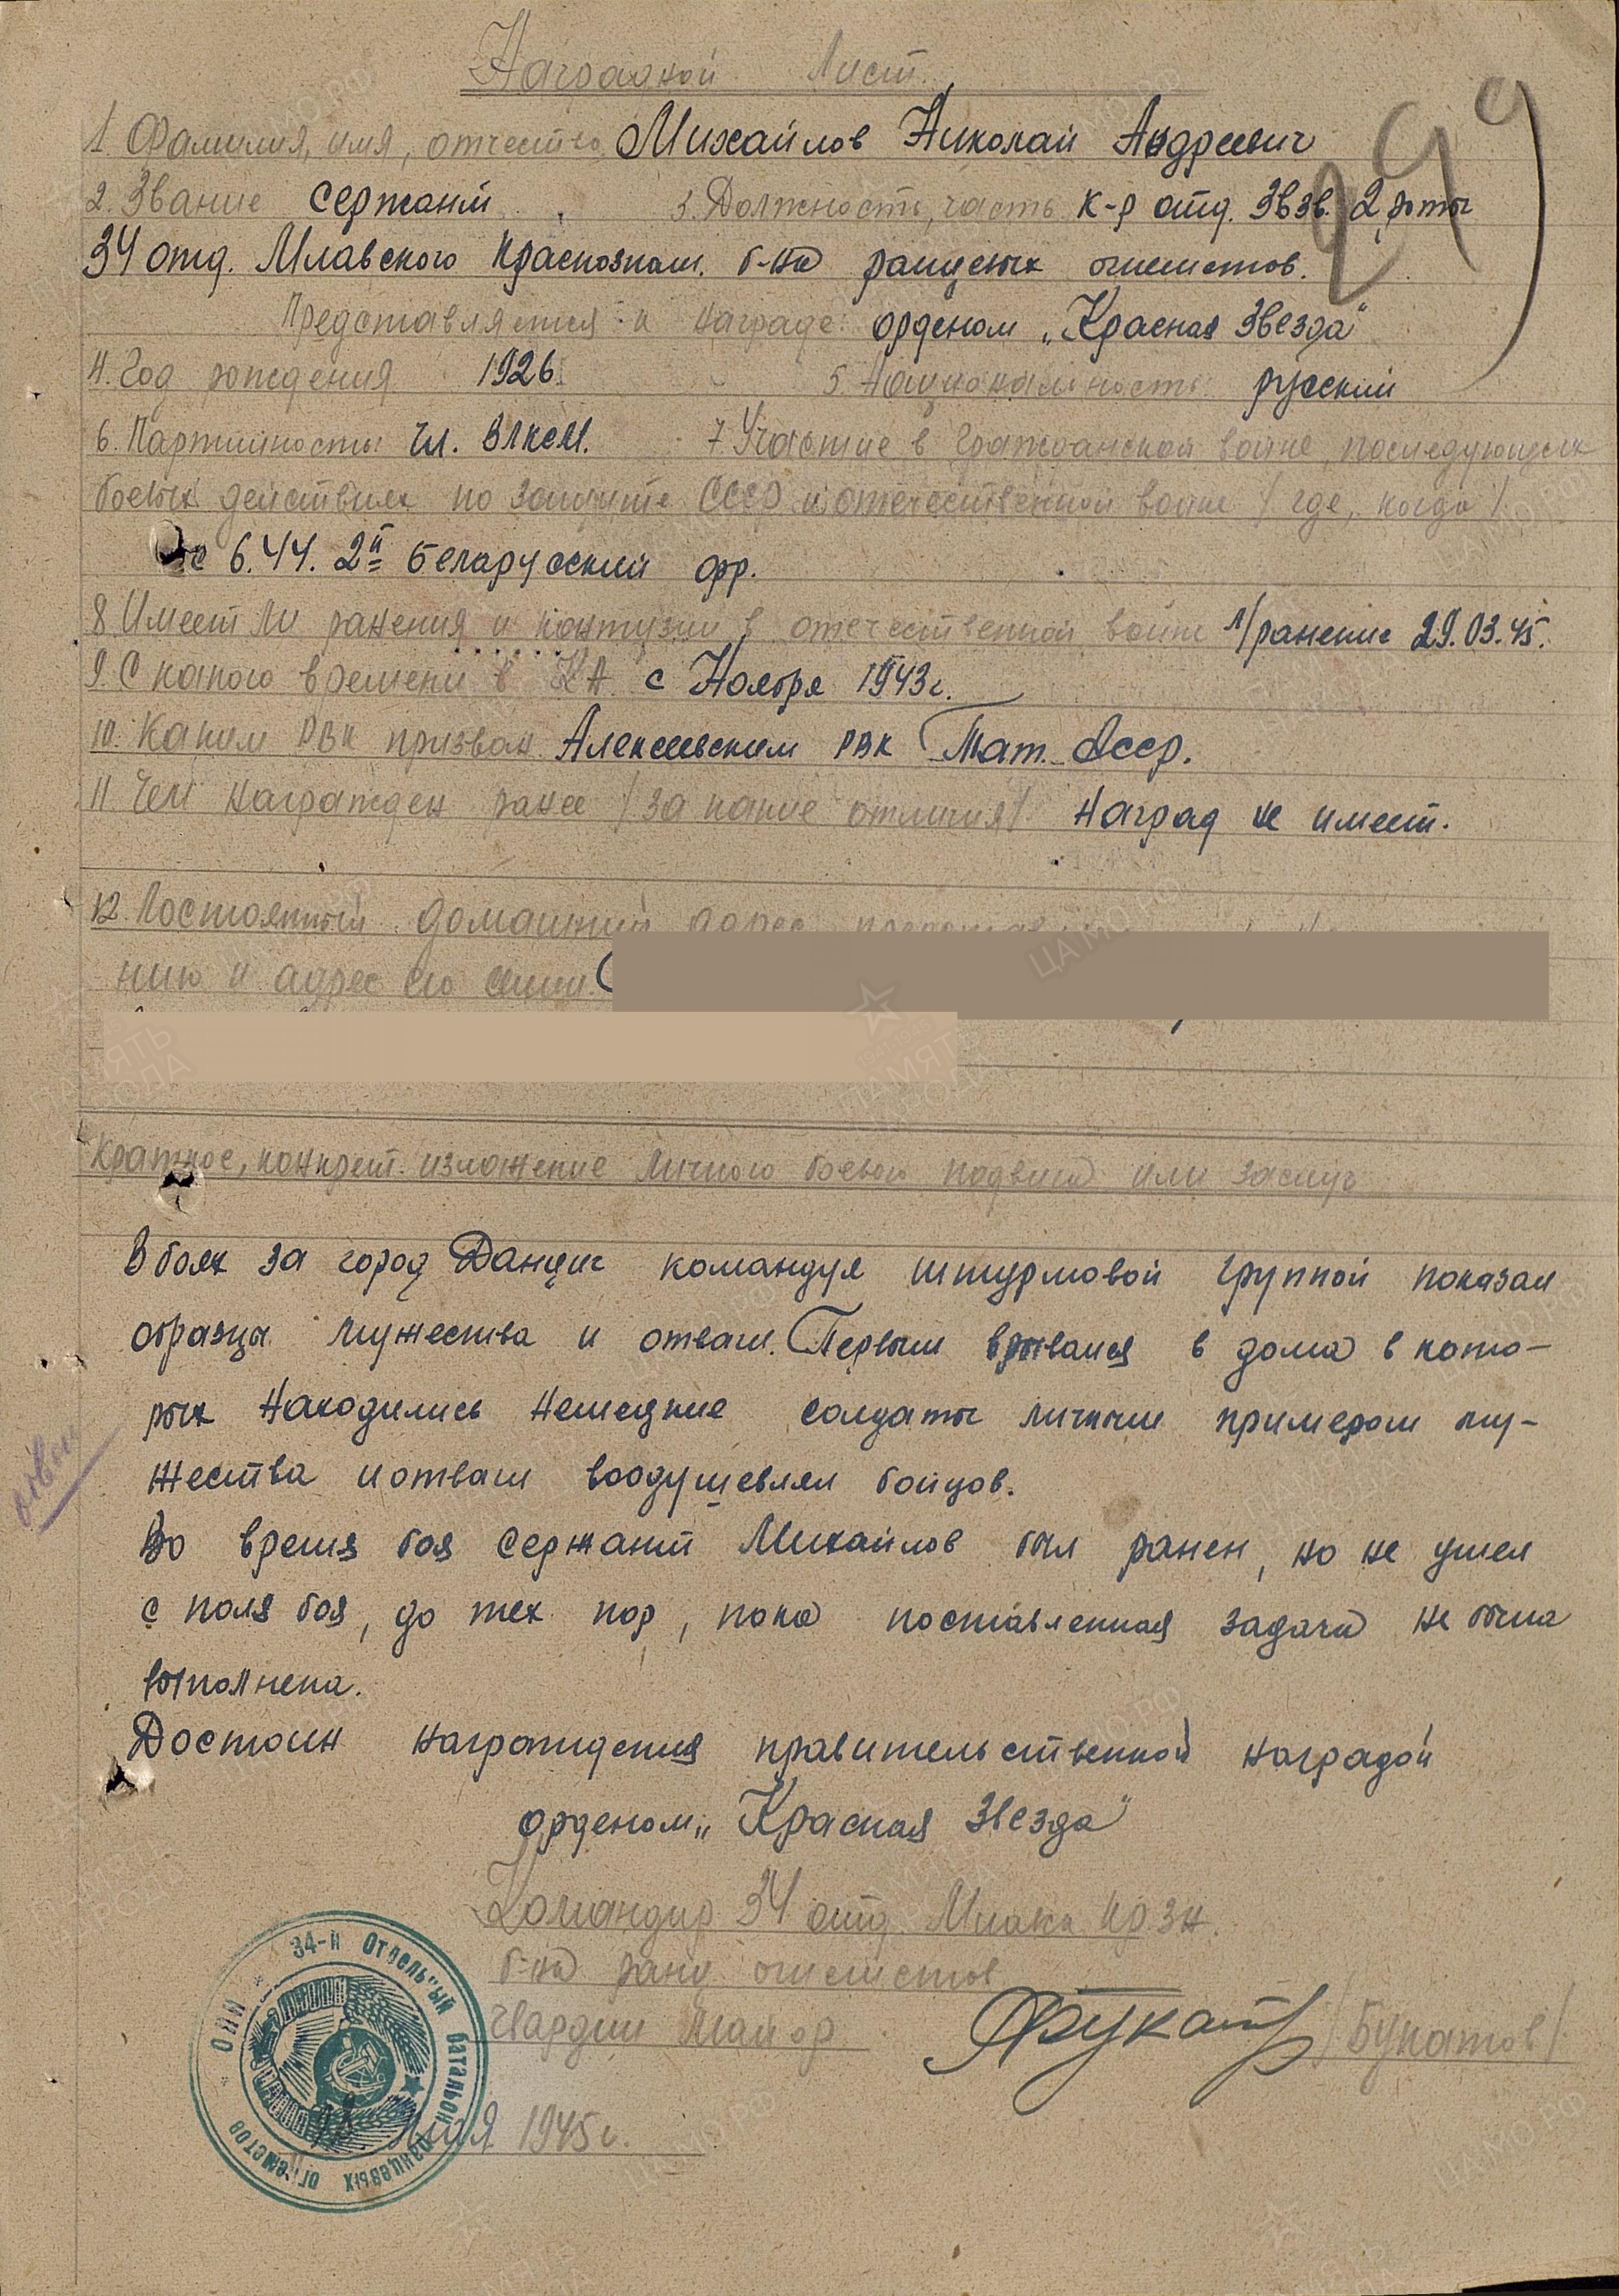 Наградной лист.
299
1. Фамилия, имя, отчество Михайлов Николай Андреевич
2. Звание сержант 3. Должность, часть к-р отд. 3 взв. 2 роты
34 отд. Млавского Краснознам. б-на ранцевых огнеметов.
Представляется к награде: орденом „Красная Звезда"
4. Год рождения 1926 5. Национальность русский
6. Партийность: чл. ВЛКСМ. 7. Участие в гражданской войне, последующих
боевых действиях по защите СССР и отечественной войне / где, когда /
с 6.44. 2й Беларусский фр.
8. Имеет ли ранения и контузии в отечественной войне л/ранение 29.03.45.
9. С какого времени в КА с Ноября 1943 г.
10. Каким РВК призван Алексеевским РВК Тат. Асср.
11. Чем награжден ранее / за какие отличия / наград не имеет.
12. Постоянный домашний адрес
нию и адрес его семьи.
Краткое, конкрет. изложение личного боевого подвига или заслуг
В боях за город Данциг командуя штурмовой группой показал
образцы мужества и отваги. Первым врывался в дома в кото-
рых находились немецкие солдаты личным примером му-
жества и отваги воодушевлял бойцов.
Во время боя сержант Михайлов был ранен, но не ушел
с поля боя, до тех пор, пока поставленная задача не была
выполнена.
Достоин награждения правительственной наградой
орденом „Красная Звезда"
Командир 34 отд. Млавск. кр. зн.
б-на ранц. огнеметов
Гвардии майор /Букатов/
мая 1945 г.
34-й Отдельный батальон ранцевых огнеметов
ЦАМО.РФ
ПАМЯТЬ НАРОДА